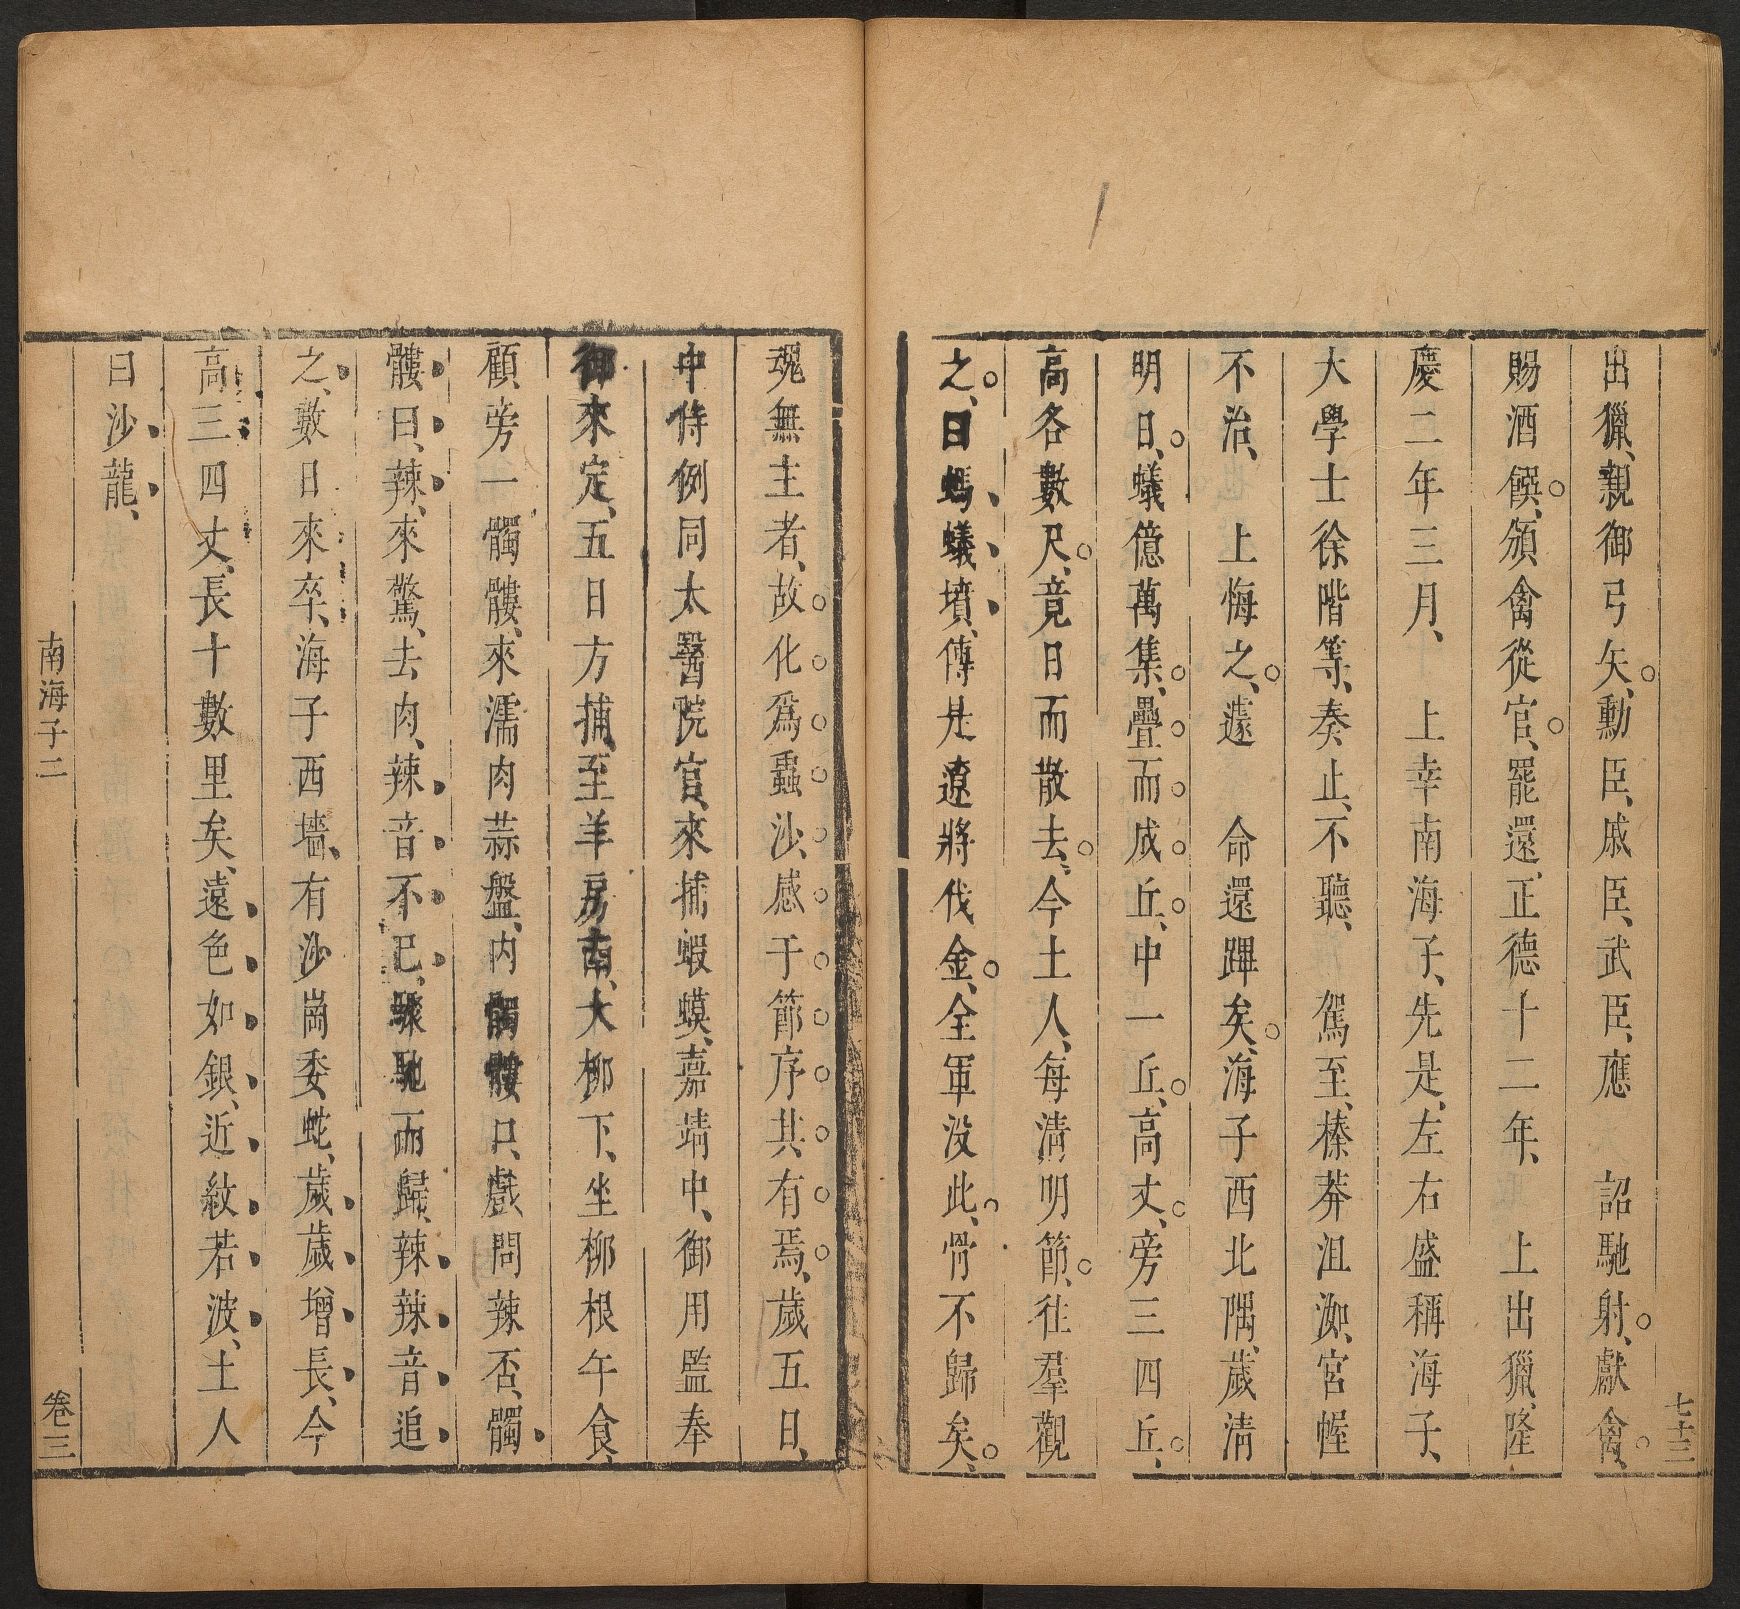 七十三
出獵、親御弓矢、勳臣、戚臣、武臣、應　詔馳射、獻禽、
賜酒饌、頒禽從官、罷還、正德十二年、　上出獵、隆
慶二年三月、　上幸南海子、先是、左右盛稱海子、
大學士徐階等、奏止、不聽、　駕至、榛莽沮洳、宮幄
不治、　上悔之、遽　命還蹕矣、海子西北隅、歲清
明日、蟻億萬集、疊而成丘、中一丘、高丈、旁三四丘、
高各數尺、竟日而散去、今土人、每清明節、往羣觀
之、曰螞蟻墳、傳是遼將伐金、全軍沒此、骨不歸矣、
魂無主者、故化為蟲沙、感于節序其有焉、歲五日、
中侍例同太醫院官、來捕蝦蟆、嘉靖中、御用監奉
御來定、五日方捕、至羊房南、大柳下、坐柳根午食、
顧旁一髑髏、來濡肉蒜盤、內髑髏口、戲問辣否、髑
髏曰、辣、來驚、去肉、辣音不已、驟馳而歸、辣辣音追
之、數日來卒、海子西墻、有沙崗委蛇、歲歲增長、今
高三四丈、長十數里矣、遠色如銀、近紋若波、土人
曰沙龍、
南海子二
卷三